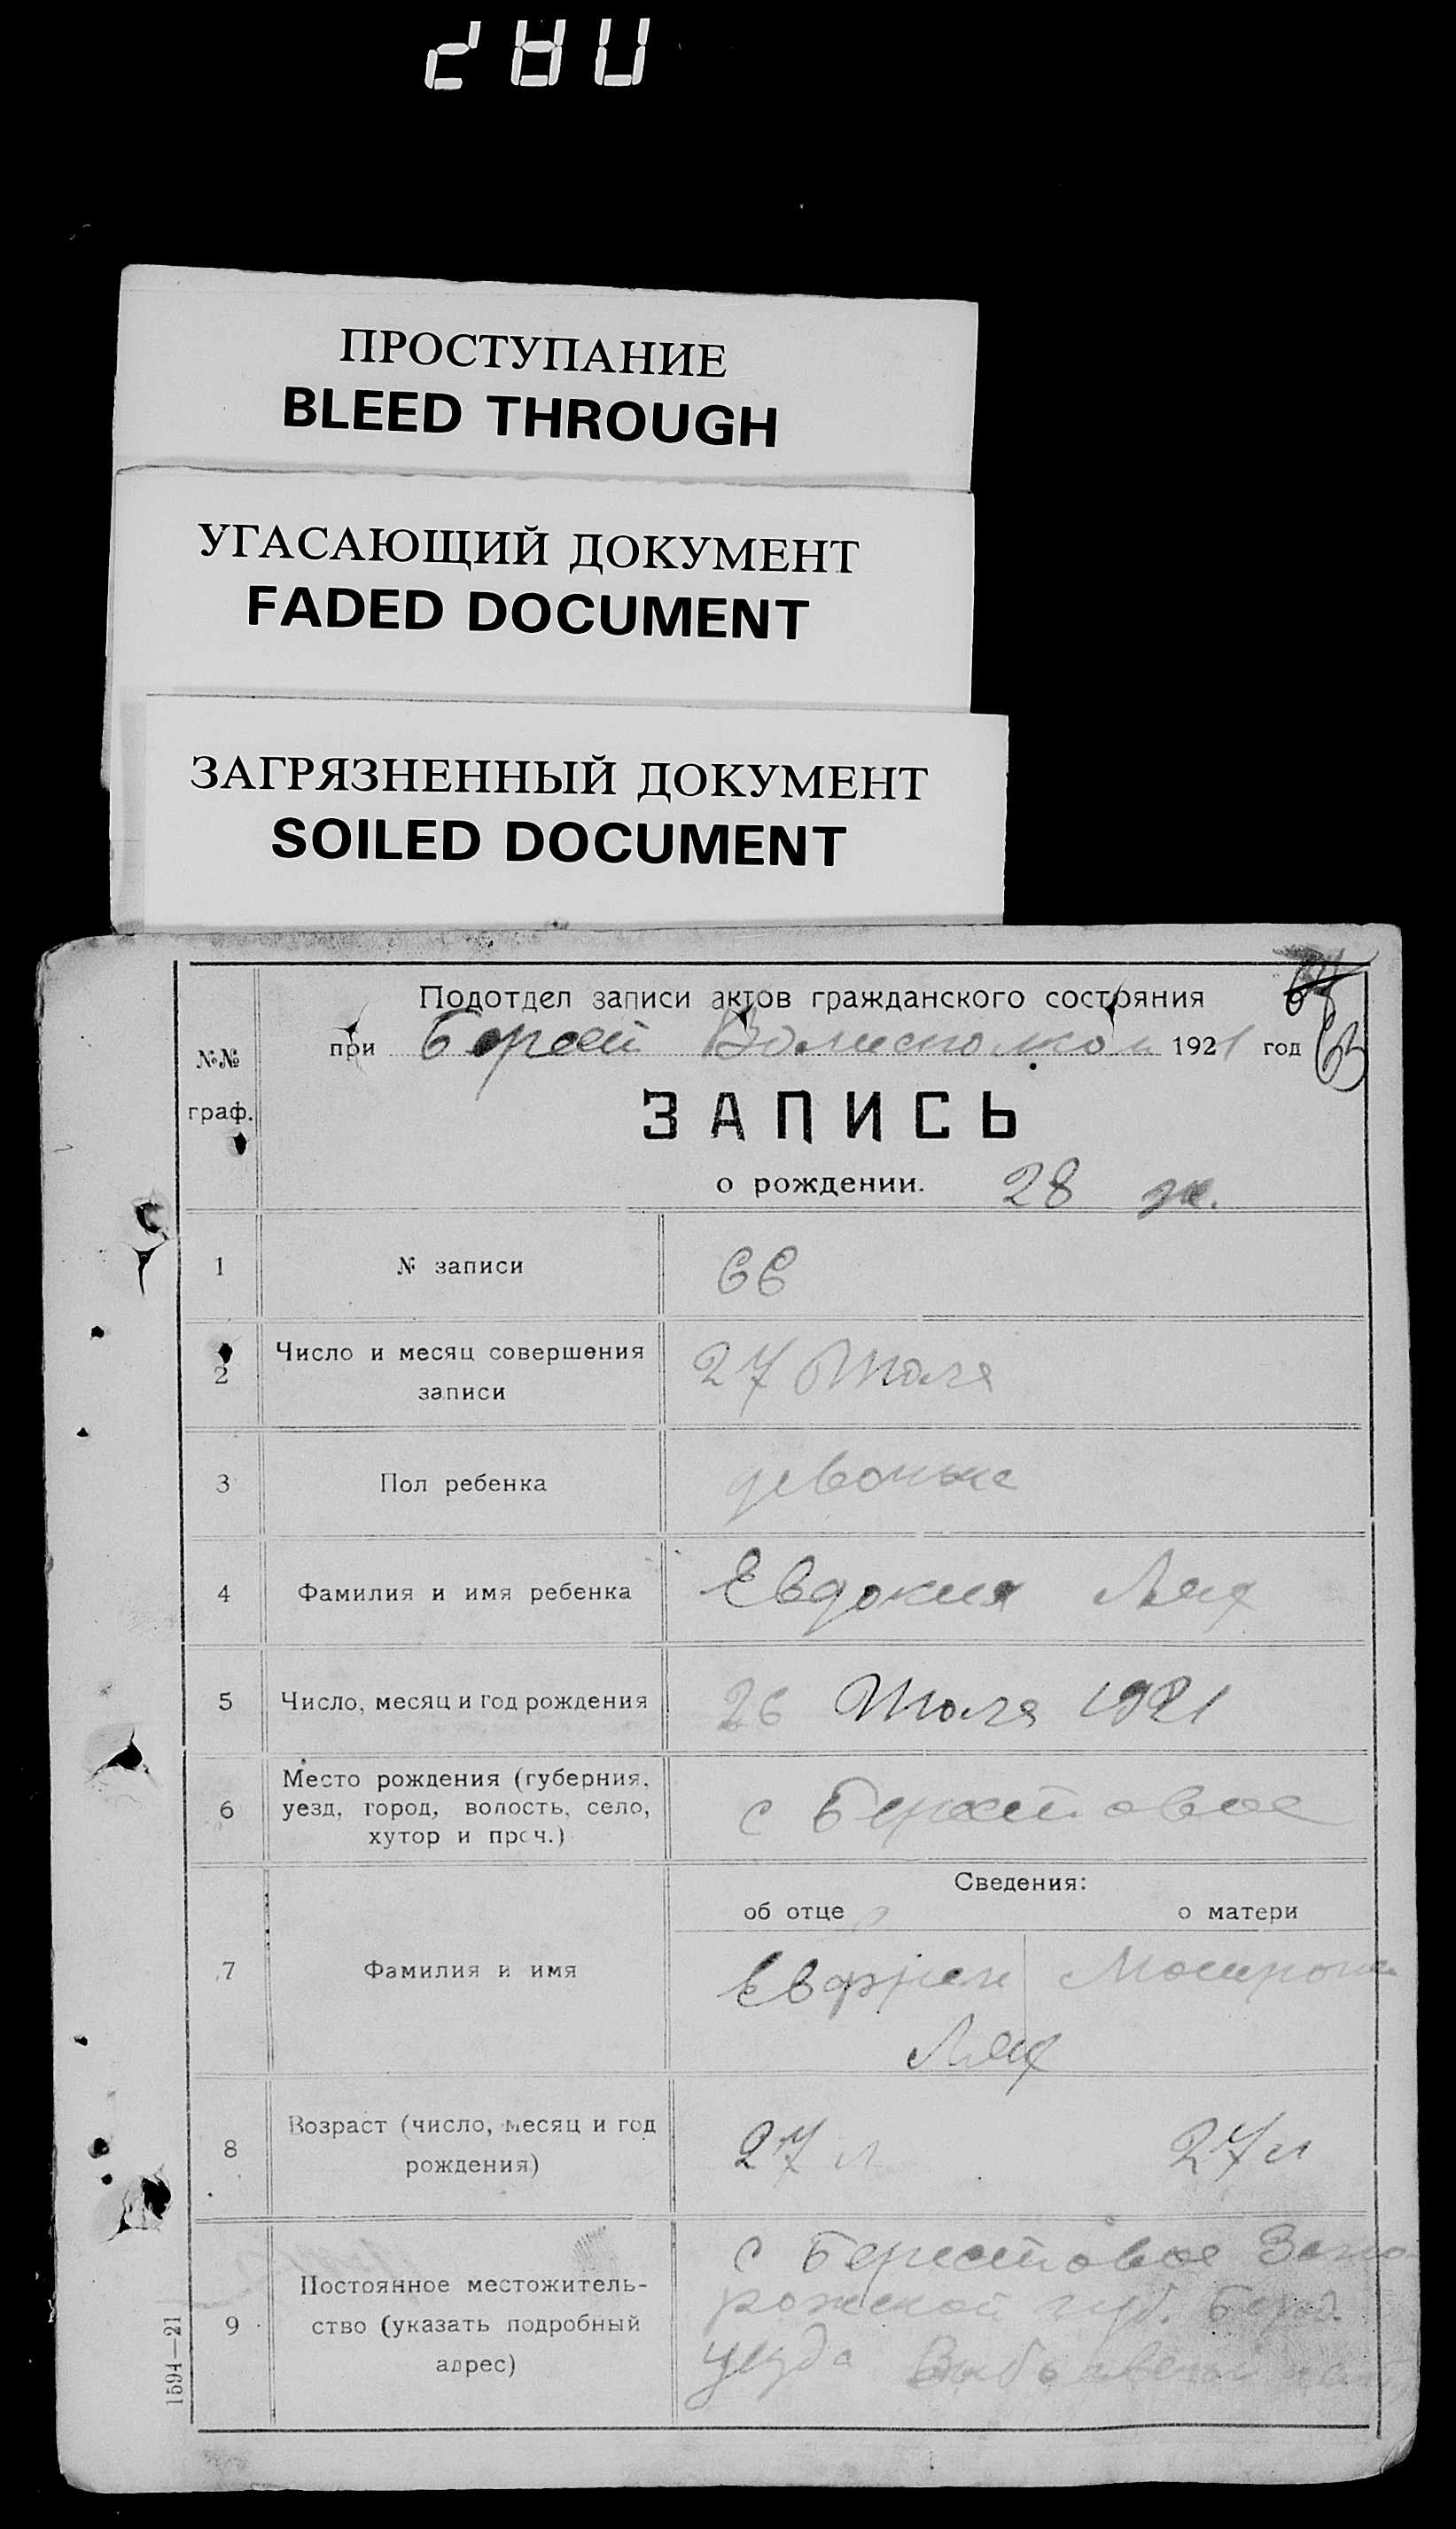 280
ПРОСТУПАНИЕ
BLEED THROUGH
УГАСАЮЩИЙ ДОКУМЕНТ
FADED DOCUMENT
ЗАГРЯЗНЕННЫЙ ДОКУМЕНТ
SOILED DOCUMENT
Подотдел записи актов гражданского состояния
при Волисполком 1921 год
63
№№
граф.
ЗАПИСЬ
о рождении. 28 ж.
1 № записи 66
2 Число и месяц совершения
записи
27 Июля
3 Пол ребенка
4 Фамилия и имя ребенка Евдокия Лях
5 Число, месяц и год рождения 26 Июля 1921
6 Место рождения (губерния,
уезд, город, волость, село,
хутор и проч.)
с Берестовое
Сведения:
об отце о матери
7 Фамилия и имя
Лях
8 Возраст (число, месяц и год
рождения)
27 л 27 л
9 Постоянное местожитель-
ство (указать подробный
адрес)
с Берестовое Запо
рожской губ. Берд.
уезда
1594—21